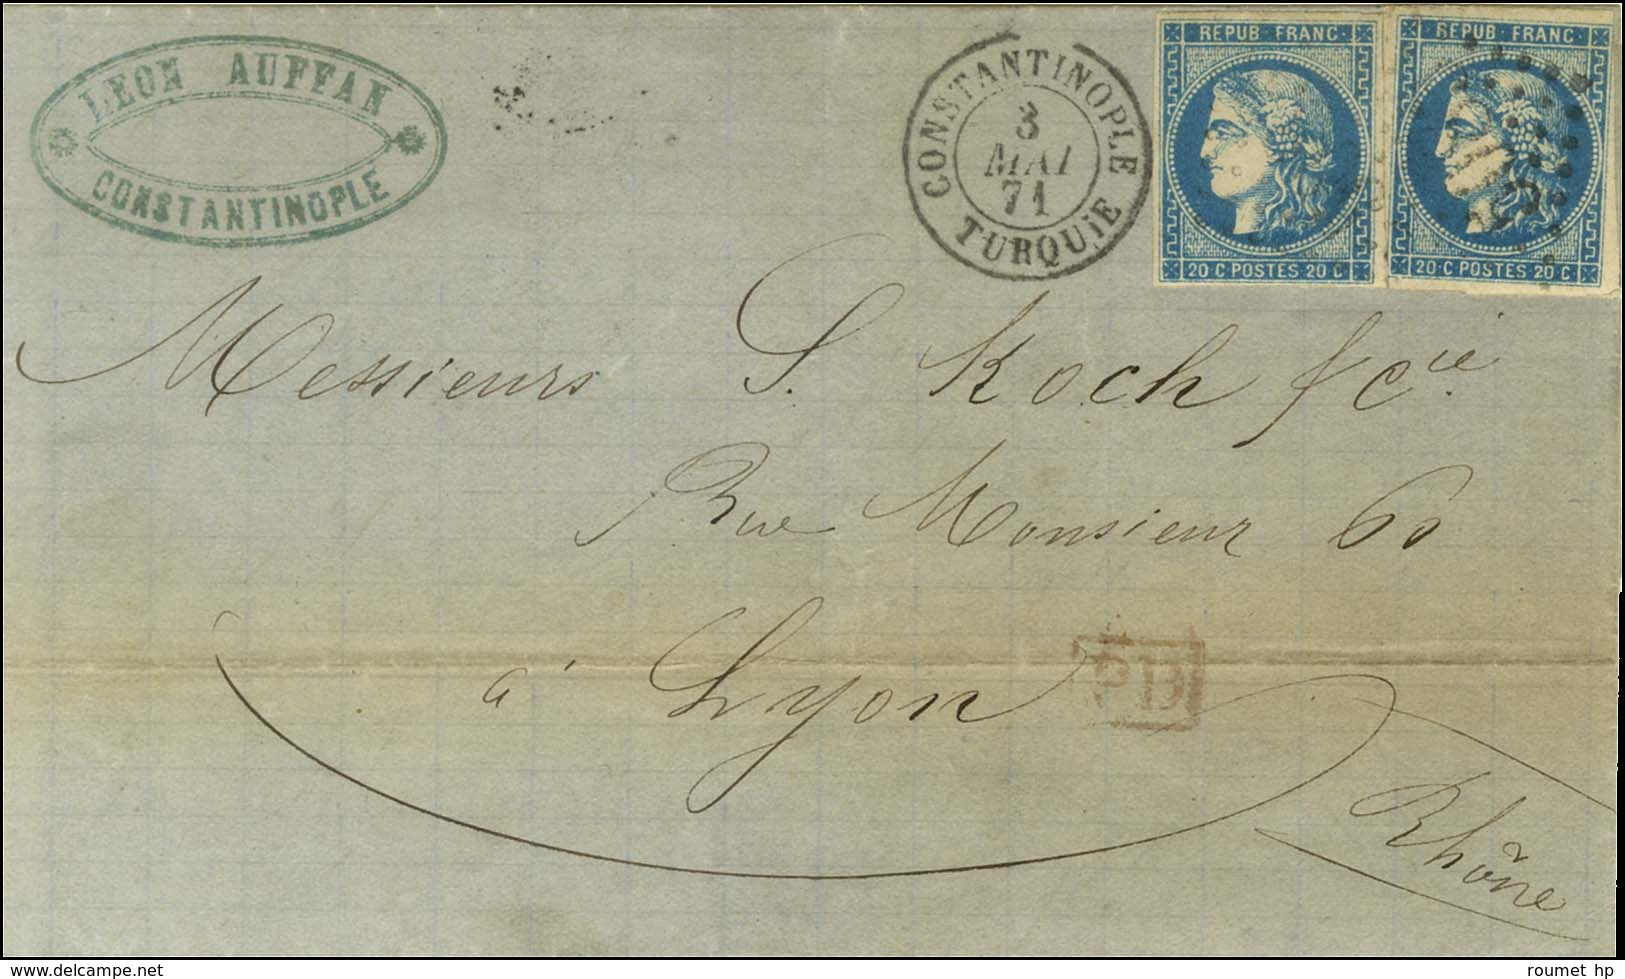 LEON AUFFAN
CONSTANTINOPLE
CONSTANTINOPLE
3
MAI
71
TURQUIE
REPUB FRANC
20 C POSTES 20 C
REPUB FRANC
20 C POSTES 20 C
Messieurs S. Koch & Cie
Rue Monsieur 60
à Lyon
PD
Rhône
www.delcampe.net
roumet hp